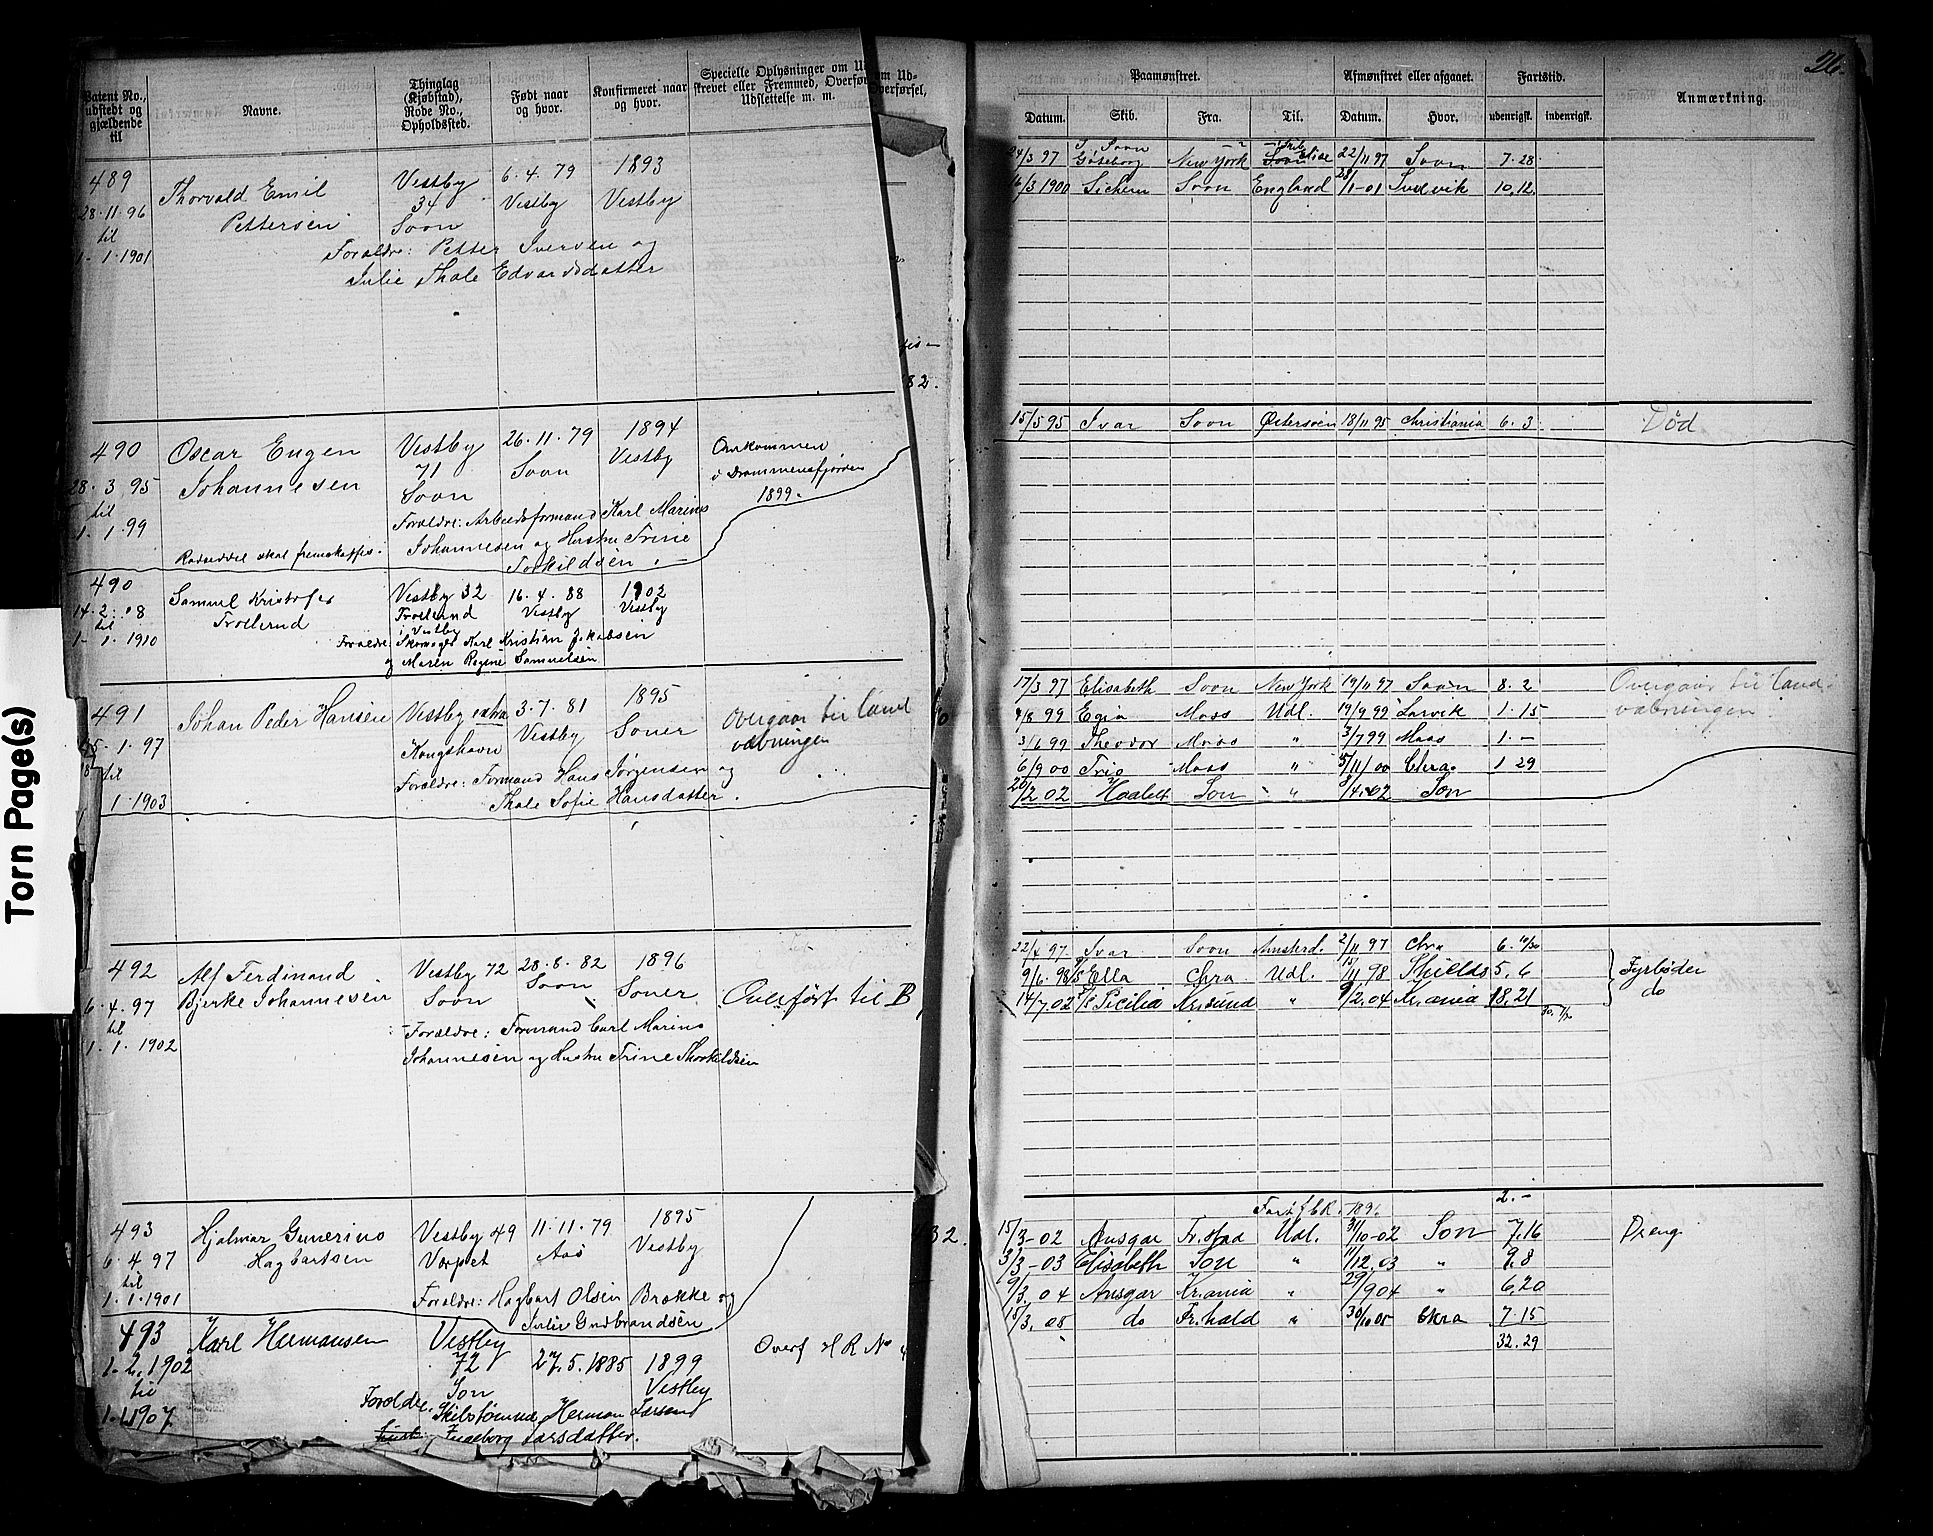 Torn Page(s)
26.
Patent No., udstedt og gjældende til
Navne.
Thinglag (Kjøbstad), Rode No., Opholdssted.
Født naar og hvor.
Konfirmeret naar og hvor.
Specielle Oplysninger om Ud-
skrevet eller Fremmed, Overførsel,
Udslettelse m. m.
489
28.11.96
til
1.1.1901
Thorvald Emil
Pettersen
Vestby
34
Soon
6.4.79
Vestby
1893
Vestby
Forældre: Petter Iversen og
Julie Thale Edvardsdatter
490
28.3.95
til
1.1.99
Oscar Eugen
Johannesen
Vestby
71
Soon
26.11.79
Soon
1894
Vestby
Omkommen
i Drammensfjorden
1899.
Forældre: Arbeidsformand Karl Marius
Johannesen og Hustru Trine
Torkildsen.
Rodseddel skal fremskaffes.
490
14.2.08
til
1.1.1910
Samuel Kristofer
Trollerud
Vestby 32
Trollerud
i Vestby
16.4.88
Vestby
1902
Vestby
Forældre: Skomager Karl Kristian Jakobsen
og Maren Regine Samuelsen
491
1.97
til
1.1903
Johan Peder Hansen
Vestby extra
Kongshavn
3.7.81
Vestby
1895
Soner
Overgaar til land
væbningen
Forældre: Formand Hans Jørgensen og
Thale Sofie Hansdatter.
492
6.4.97
til
1.1.1902
Alf Ferdinand
Bjerke Johannesen
Vestby 72
Soon
28.8.82
Soon
1896
Soner
Overført til B
Forældre: Formand Carl Marius
Johannesen og Hustru Trine Thorkildsen
493
6.4.97
til
1.1.1901
Hjalmar Gunerius
Hagbartsen
Vestby 49
Vorpet
11.11.79
Aas
1895
Vestby
Forældre: Hagbart Olsen Brække og
Julie Gudbrandsen
493
1.2.1902
til
1.1.1907
Karl Hermansen
Vestby
72
Son
27.5.1885
1899
Vestby
Overf H R No 4
432.
Forældre.
Skibstømmr. Herman Larsen
Ingeborg Larsdatter.
Paamønstret.
Afmønstret eller afgaaet.
Fartstid.
Anmærkning.
Datum. Skib. Fra. Til. Datum. Hvor. udenrigsk. indenrigsk.
24/3 97 Göteborg New York 22/11 97 Soon 7.28
16/3 1900 Sichem Soon England 28/1-01 10.12
15/5 95 Ivar Soon Østersøen 18/11 95 Christiania 6.3 Død
17/3 97 Elisabeth Soon New York 19/11 97 Soon 8.2 Overgaar til land-
væbningen.
4/8 99 Egia Moss Udl. 19/9 99 Larvik 1.15
3/6 99 Theodor Moss " 3/7 99 Moss 1.-
6/9 00 Trio Moss " 5/11 00 Chra. 1 29
20/2 02 Haabet Son " 8/4 02 Son
22/4 97. Ivar Soon Amsterd. 2/11 97 Chra 6.10/30
9/6.98 Ella Chra Udl. 15/11 98 Shields 5.6 Fyrbøder
14/7 02 Kr.sund " 9/2.04 Kr.ania 18.21 do
2.-
15/3-02 Ansgar Fr.stad Udl. 31/10-02 Son 7.16 Dreng
3/3-03 Elisabeth Son " 11/12.03 " 9.8
9/3.04 Ansgar Kr.ania " 29/904 " 6.20
15/3.05 do Fr.hald " 30/10 05 Chra 7.15
32.29